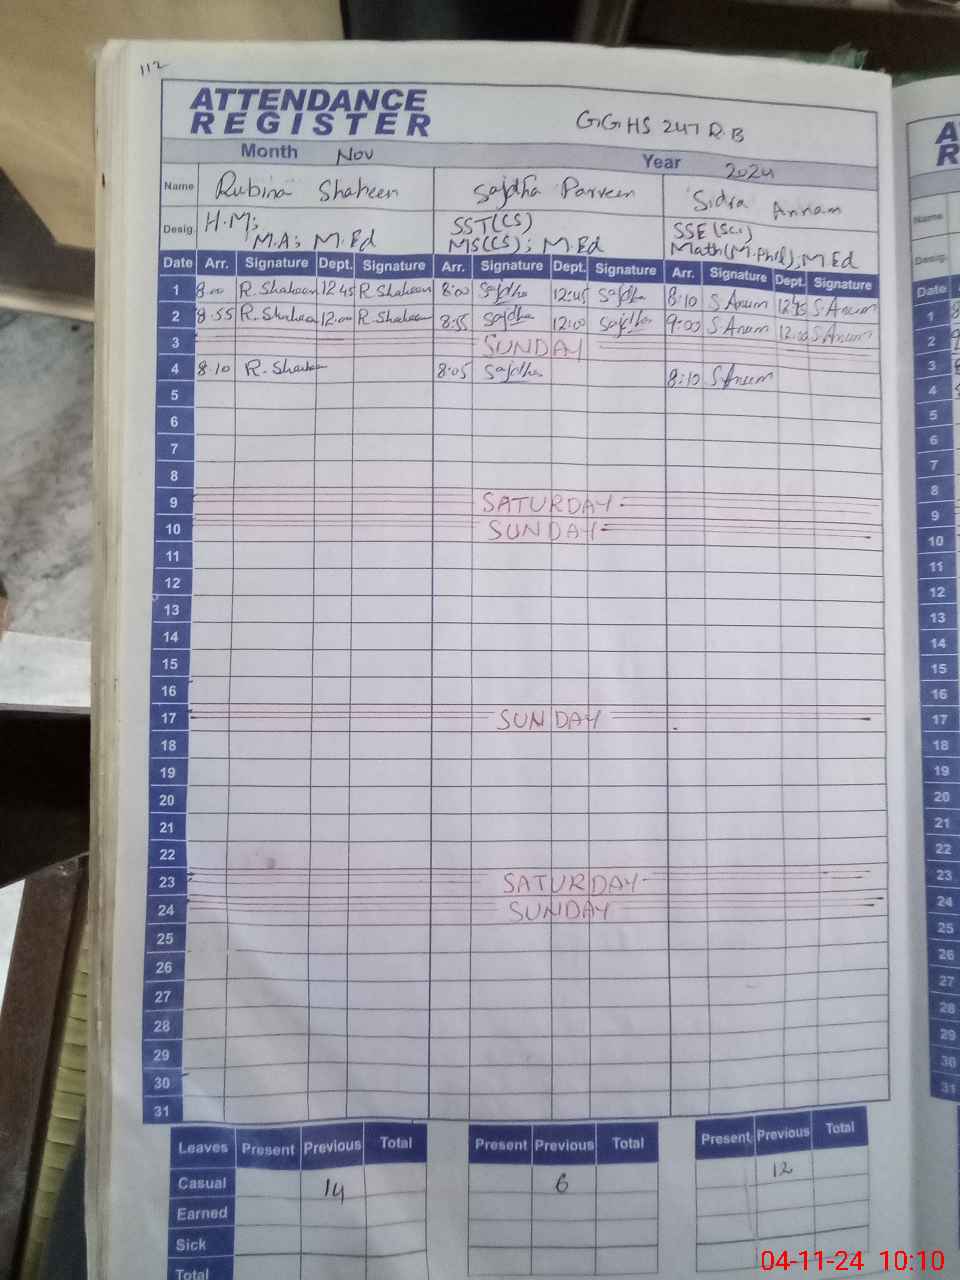 112
ATTENDANCE
REGISTER
GGHS 247 R.B
Month Nov Year 2024
Name Rubina Shaheen Sajdha Parveen Sidra Annam
Desig. H.M; SST(CS) SSE(Sci)
M.A; M.Ed MS(CS); M.Ed Math(M.Phil); M.Ed
Date Arr. Signature Dept. Signature Arr. Signature Dept. Signature Arr. Signature Dept. Signature
1 8.00 R.Shaheen 12 45 R.Shaheen 8:00 Sajdha 12:45 Sajdha 8:10 S.Anum 12:45 S.Anum
2 8.55 R.Shaheen 12:00 R.Shaheen 8:55 Sajdha 12:00 Sajdha 9:00 S.Anum 12:00 S.Anum
3 SUNDAY
4 8.10 R.Shaheen 8:05 Sajdha 8:10 S.Anum
5
6
7
8
9 SATURDAY
10 SUNDAY
11
12
13
14
15
16
17 SUNDAY
18
19
20
21
22
23 SATURDAY
24 SUNDAY
25
26
27
28
29
30
31
Leaves Present Previous Total Present Previous Total Present Previous Total
Casual 14 6 12
Earned
Sick
Total
A
R
Name
Desig.
Date
1
2
3
4
5
6
7
8
9
10
11
12
13
14
15
16
17
18
19
20
21
22
23
24
25
26
27
28
29
30
31
04-11-24 10:10